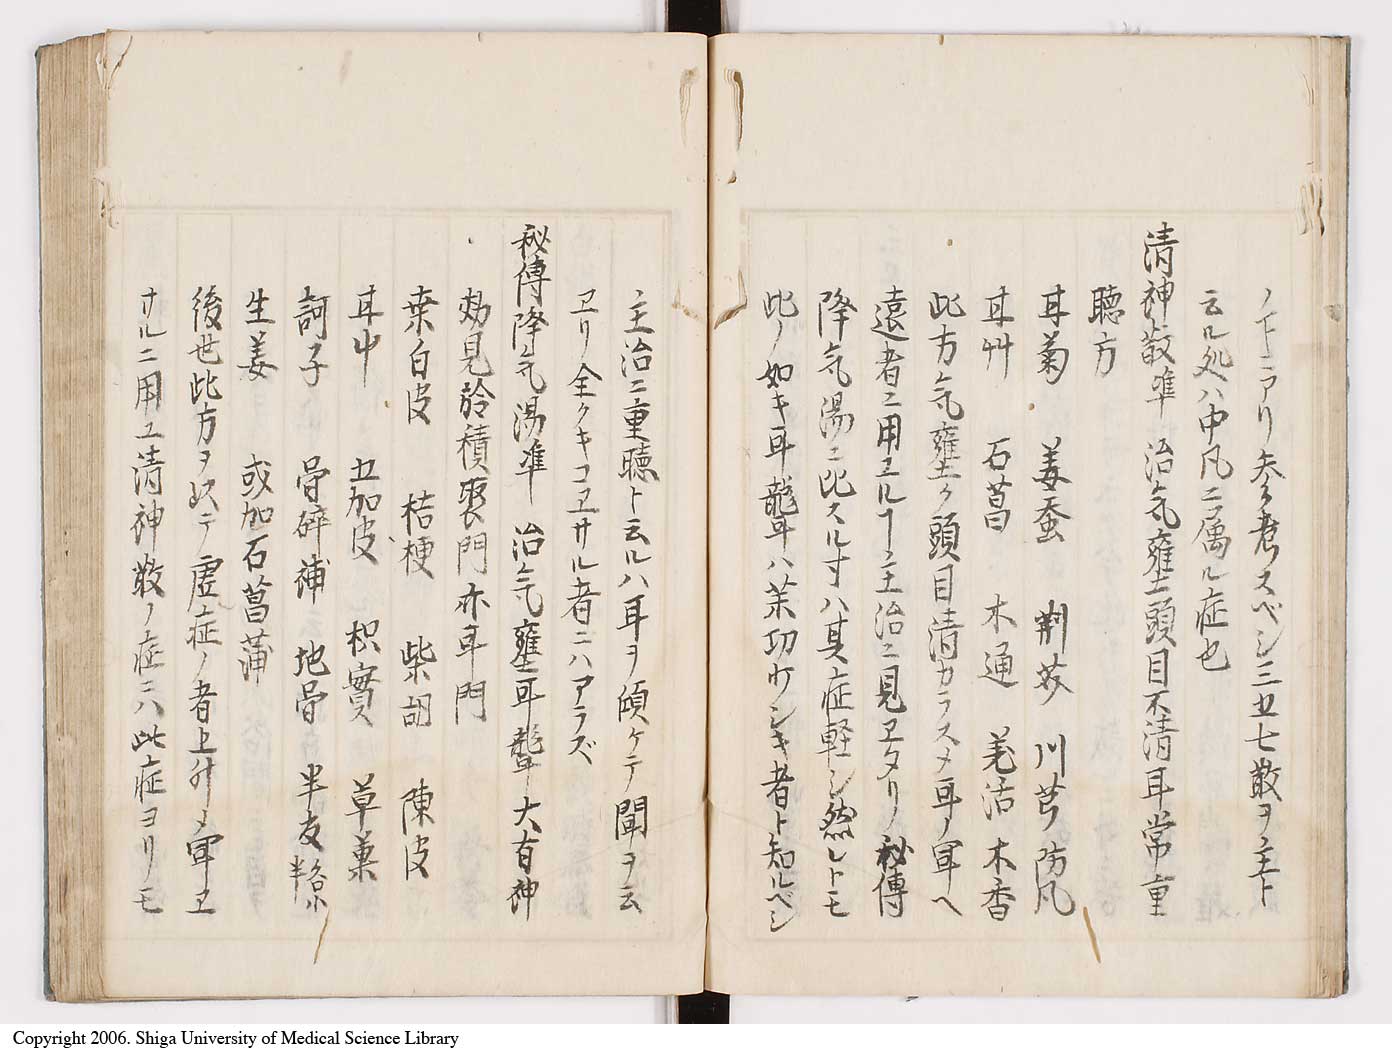 ノ下ニアリ参考スベシ三五七散ヲ主ト
云ル処ハ中凡ニ属ル症也
清神散準 治気壅頭目不清耳常重
聴方
耳菊 姜蚕 荆芥 川芎 防凡
耳艸 石菖 木通 羌活 木香
此方気壅ク頭目清カラスメ耳ノ睘ヘ
遠者ニ用ヱルヿ主治ニ見ヱタリ秘傳
降気湯ニ比スル寸ハ其症軽シ然レトモ
此ノ如キ耳聾ハ茉功ケンキ者ト知ルベシ
主治ニ重聴ト云ルハ耳ヲ傾ケテ聞ヲ云
ヱリ全クキコヱサル者ニハアラズ
秘傳降気湯準 治気壅耳聾大有神
効見於積聚門亦耳門
桒白皮 桔梗 柴胡 陳皮
耳中 五加皮 枳實 草菓
訶子 骨碎補 地骨 半夏
生姜 或加石菖蒲
後世此方ヲ以テ虚症ノ者上升メ睘ヱ
サルニ用ユ清神散ノ症ニハ此症ヨリモ
Copyright 2006. Shiga University of Medical Science Library